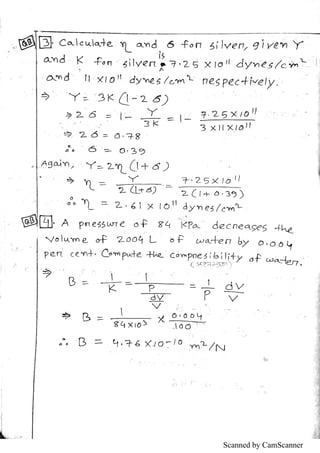 Q3 3. Calculate η and б fon silven, given Y
and K fon silven is 7.25 x 10¹¹ dynes/cm²
and 11 x 10¹¹ dynes/cm² nespectively.
⇒ Y = 3K (1-2б)
⇒ 2б = 1 - Y/3K = 1 - 7.25 x 10¹¹ / 3 x 11 x 10¹¹
⇒ 2б = 0.78
∴ б = 0.39
Again, Y = 2η (1+б)
⇒ η = Y / 2(1+б) = 7.25 x 10¹¹ / 2(1+0.39)
∴ η = 2.61 x 10¹¹ dynes/cm²
Q3 4. A pnessune of 84 KPa decneases the
volume of 2004 L of waten by 0.004
pen cent. Compute the compnesibility of waten.
⇒ B = 1/K = 1 / P/(dV/V) = 1/P dV/V
⇒ B = 1 / 84x10³ x 0.004 / 100
∴ B = 4.76 x 10⁻¹⁰ m²/N
Scanned by CamScanner